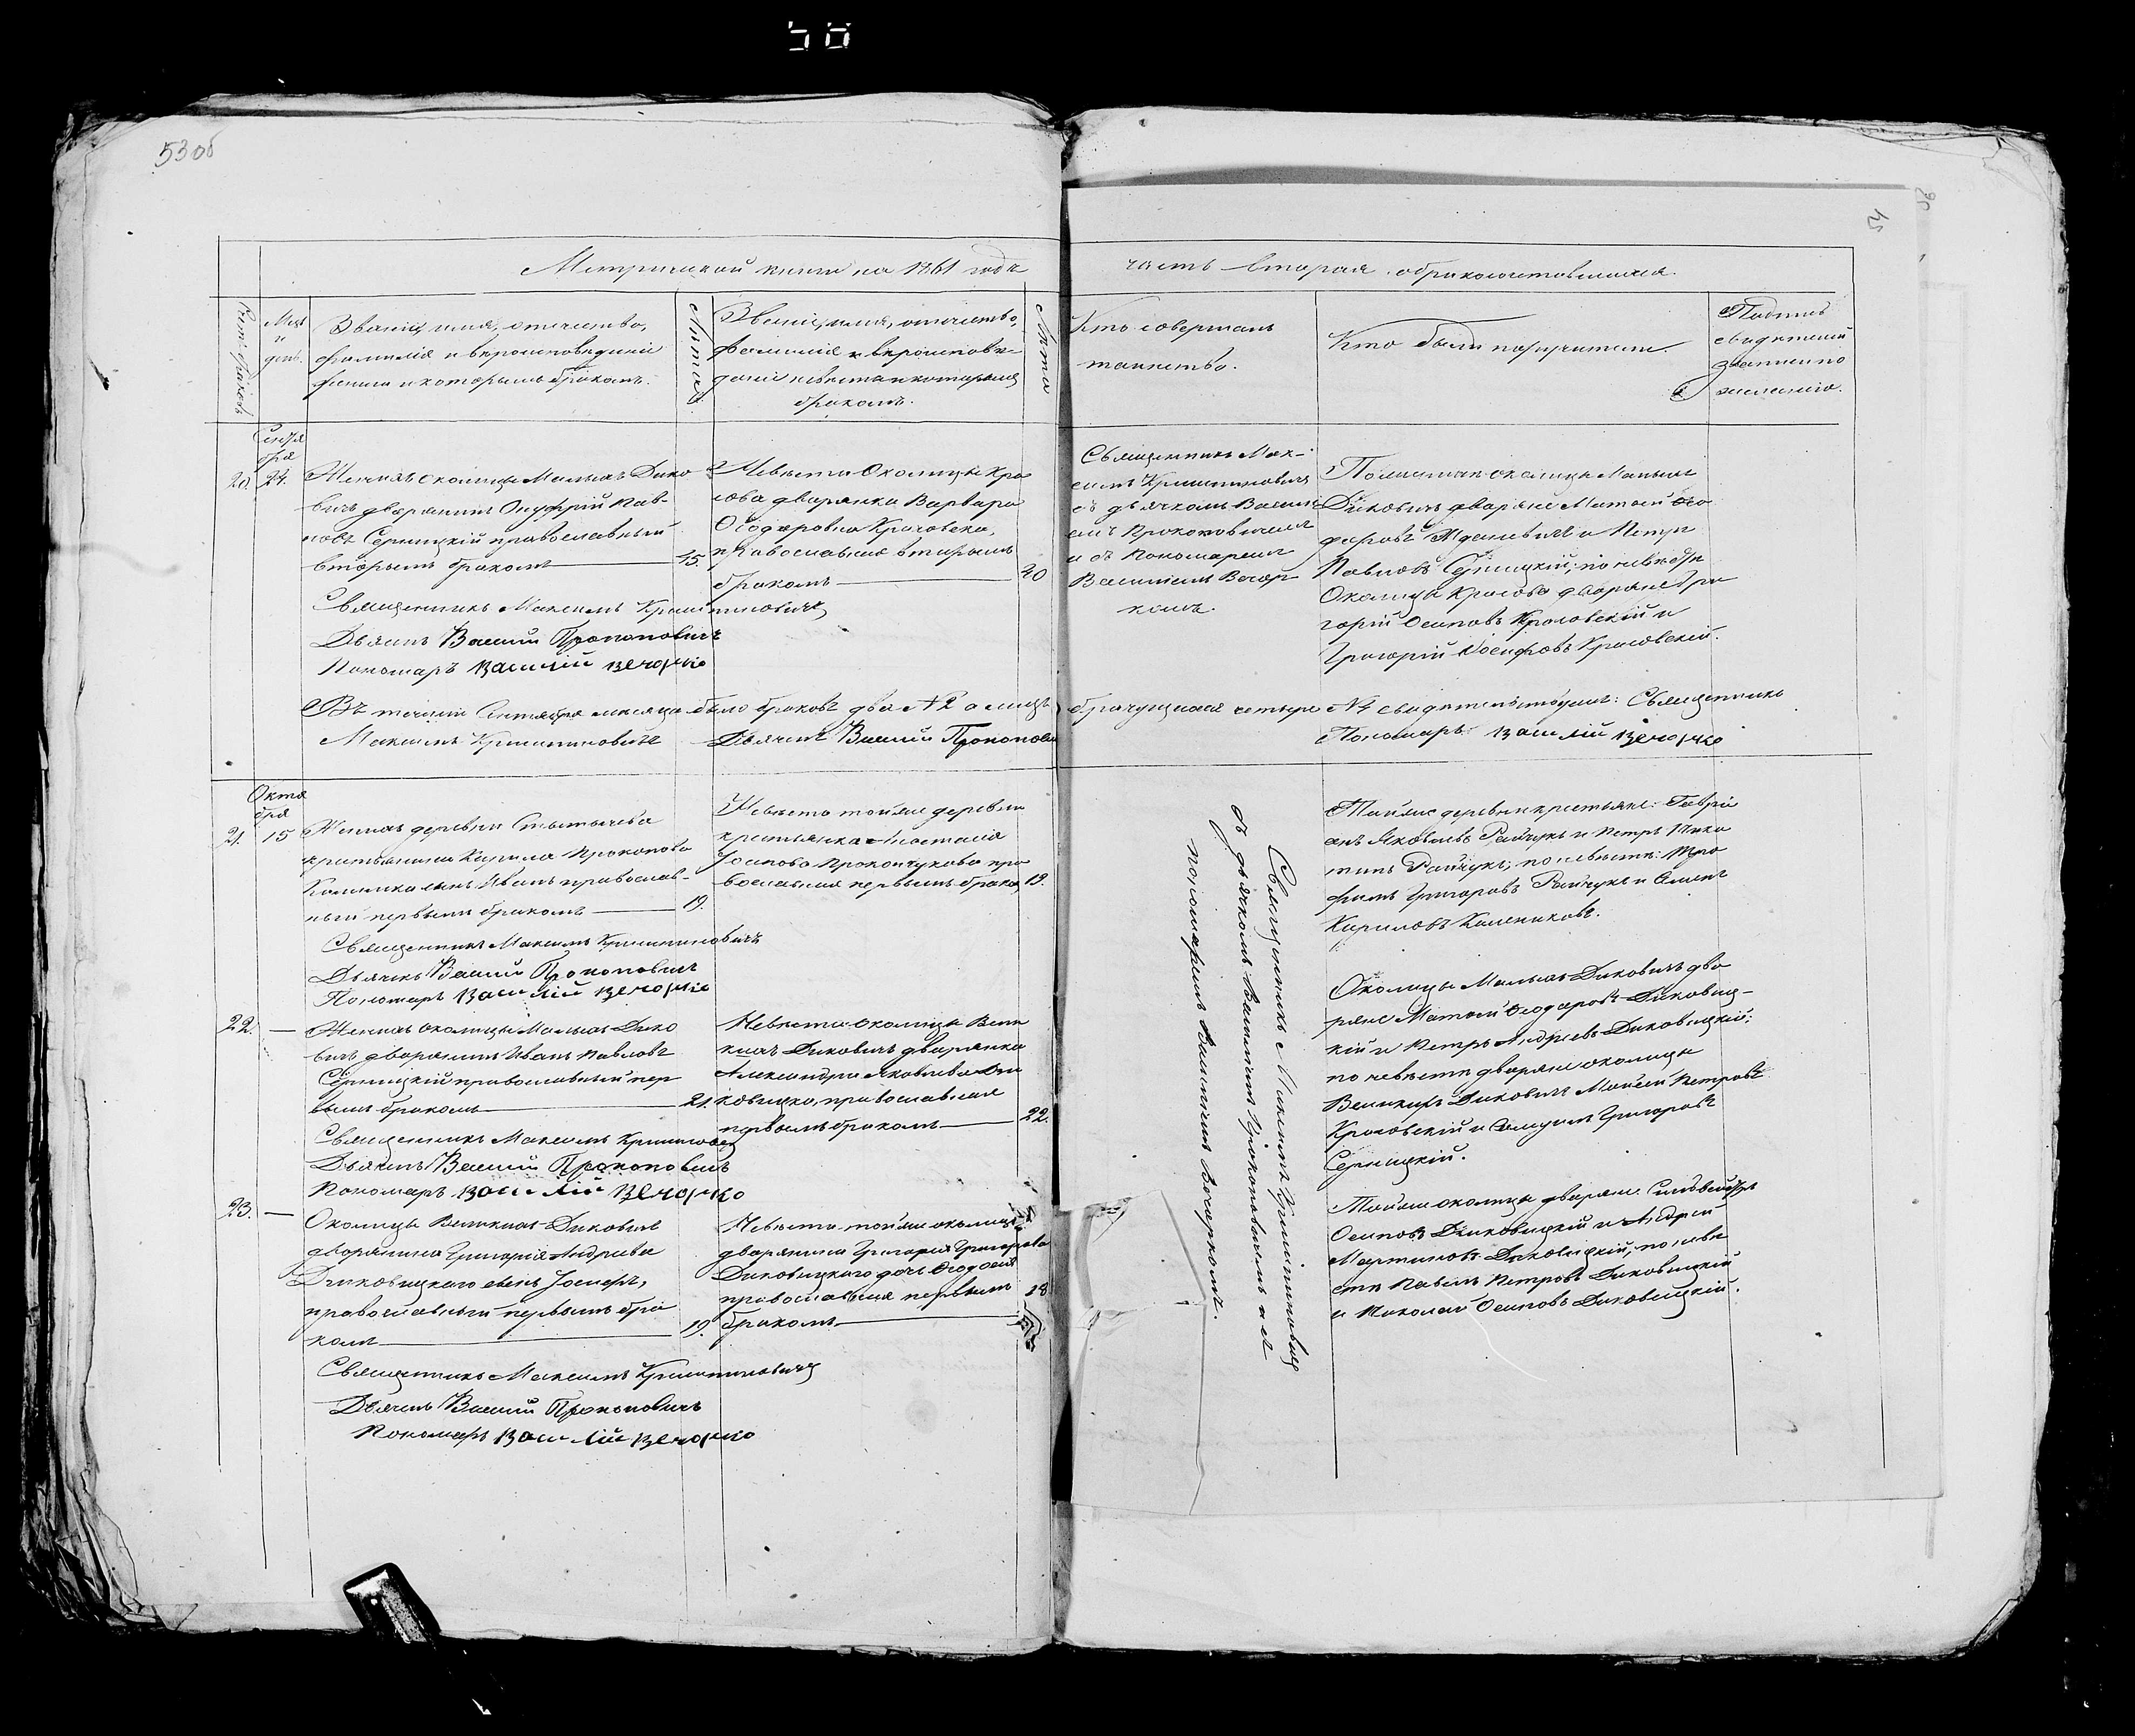 53 об
Метрической книги на 1861 годъ
часть вторая о бракосочетавшихся.
Счетъ браковъ
Мѣсяцъ
и
день.
Званіе, имя, отчество,
фамилія и вѣроисповѣданіе
жениха и которымъ бракомъ.
Лѣта
Званіе, имя, отчество,
фамилія и вѣроисповѣ-
даніе невѣсты и которымъ
бракомъ.
Лѣта
Кто совершалъ
таинство.
Кто были поручители.
Подпись
свидѣтелей
записи по
желанію.
Сентя
бря
20. 24.
Женихъ околицы Малыхъ Дико
вичъ дворянинъ Онуфрій Пав-
ловъ Серницкій православный
вторымъ бракомъ 45.
Невѣста Околицы Кра
сова дворянка Варвара
Ѳеодоровна Красовска,
православная вторымъ
бракомъ 40
Священникъ Мак-
симъ Криштиновичъ
съ дьячкомъ Васил
емъ Прокоповичемъ
и съ Пономаремъ
Василіемъ Вечор
комъ.
По жениху околицы Малыхъ
Диковичъ дворяне Матвей Ѳео
доровъ и Петръ
Павловъ Серницкій; по невѣстѣ
Околицы Красова дворяне Гри
горій Осиповъ Красовскій и
Григорій Іосифовъ Красовскій.
Священникъ Максимъ Криштиновичъ
Дьячекъ Василій Прокоповичъ
Пономарь Василій Вечорко
Въ теченіи Сентября мѣсяца было браковъ два №2 а лицъ
брачущихся четыре №4 свидѣтельствуемъ: Священникъ
Максимъ Криштиновичъ Дьячекъ Василій Прокопови
Пономарь Василій Вечорко
Октя
бря
21. 15
Женихъ деревни Стытычева
крестьянина Кирила Прокопова
Каленика сынъ Иванъ православ-
ный первымъ бракомъ 19.
Невѣста тойже деревни
крестьянка Анастасія
Іосипова Прокопчукова пра
вославная первымъ брако 19.
Священникъ Максимъ Криштиновичъ
съ дьячкомъ Василіемъ Прокоповичемъ и съ
пономаремъ Василіемъ Вечоркомъ.
Тойже деревни крестьяне: Гаврі
илъ Яковлевъ Райчукъ и Петръ Ники
тинъ Райчукъ; по невѣстѣ: Тро
фимъ Григоровъ Райчукъ и Семенъ
Кириловъ Калениковъ.
Священникъ Максимъ Криштиновичъ
Дьячекъ Василій Прокоповичъ
Пономарь Василій Вечорко
22. —
Женихъ околицы Малыхъ Дико
вичъ дворянинъ Иванъ Павловъ
Серницкій православный пер
вымъ бракомъ 21.
Невѣста околицы Вели
кихъ Диковичъ дворянка
Александра Яковлева Ди
ковицка, православная
первымъ бракомъ 22.
Околицы Малыхъ Диковичъ дво
ряне Матвей Ѳеодоровъ Диковиц-
кій и Петръ Андреевъ Диковицкій;
по невѣстѣ дворяне околицы
Великихъ Диковичъ Мойсей Петровъ
Красовскій и Григоровъ
Серницкій.
Священникъ Максимъ Криштинович
Дьячекъ Василій Прокоповичъ
Пономарь Василій Вечорко
23. —
Околицы Великихъ Диковичъ
дворянина Григорія Андреева
Диковицкаго сынъ Іосифъ,
православный первымъ бра
комъ 19.
Невѣста тойже околицы
дворянина Григорія Григорова
Диковицкаго дочь Ѳеодосія
православная первымъ 18
бракомъ
Тойже околицы дворяне
Осиповъ Диковицкій и Андрей
Мартиновъ Диковицкій; по невѣ
стѣ Павелъ Петровъ Диковицкій
и Николай Осиповъ Диковицкій.
Священникъ Максимъ Криштиновичъ
Дьячекъ Василій Прокоповичъ
Пономарь Василій Вечорко